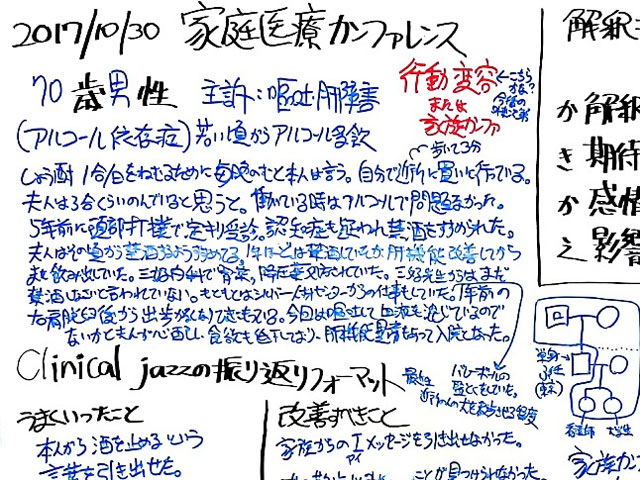 2017/10/30 家庭医療カンファレンス
70歳男性 主訴:嘔吐 肝障害
行動変容
または
家族カンファ
←こちら
かな?
(アルコール依存症) 若い頃からアルコール多飲
歩いて3分
しょう酎1合/日をねむるために毎晩のむと本人は言う。自分で近所に買いに行っている。
夫人は3合くらいのんでいると思うと。働いている時はアルコールで問題なかった。
5年前に頭部打撲で定期受診。認知症も疑われ禁酒をすすめられた。
夫人はその頃から禁酒するよう すすめてる。1年ほどは禁酒していたが肝機能改善してから
また飲み出していた。
禁酒しなさいと言われていない。もともとはシルバー人材センターからの仕事もしていた。1年前の
右肩脱臼後から出歩かなくなってきてもいる。今回は嘔吐して血液も混じているので
ないかと夫人が心配し、食欲も低下しており、肝機能異常もあって入院となった。
Clinical jazzの振り返りフォーマット
最近
バレーボールの
うまくいったこと
本人から酒を止めるという
言葉を引き出せた。
改善すべきこと
家族からのIメッセージを引き出せなかった。
アイ
ことが見つけられなかった。
解釈
か 解釈
き 期待
か 感情
え 影響
回
単身
赴任
(東京)
看護師 大学生
家族カン